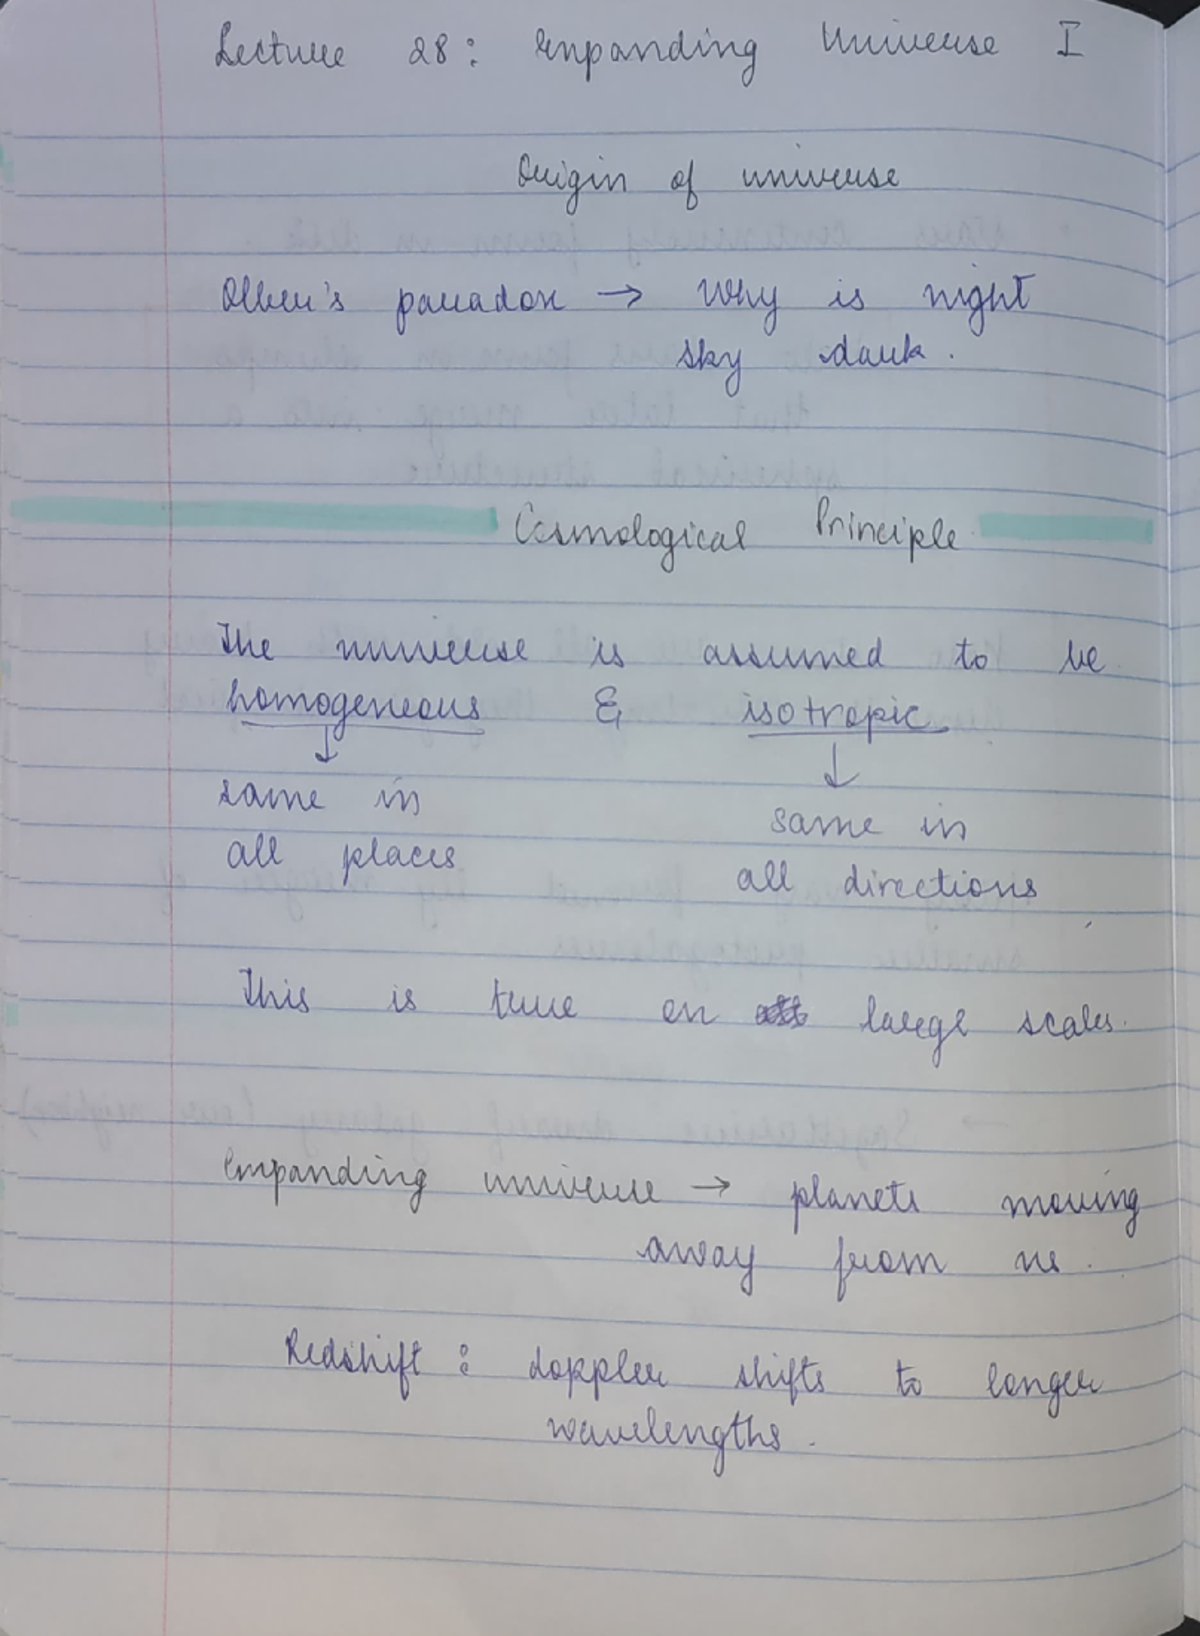 Lecture 28: Expanding Universe I
Origin of universe
Olber's paradox → Why is night
sky dark.
Cosmological Principle
The universe is assumed to be
homogeneous & isotropic
↓ ↓
same in same in
all places all directions
This is true on large scales.
Expanding universe → planets moving
away from us.
Redshift: doppler shifts to longer
wavelengths.